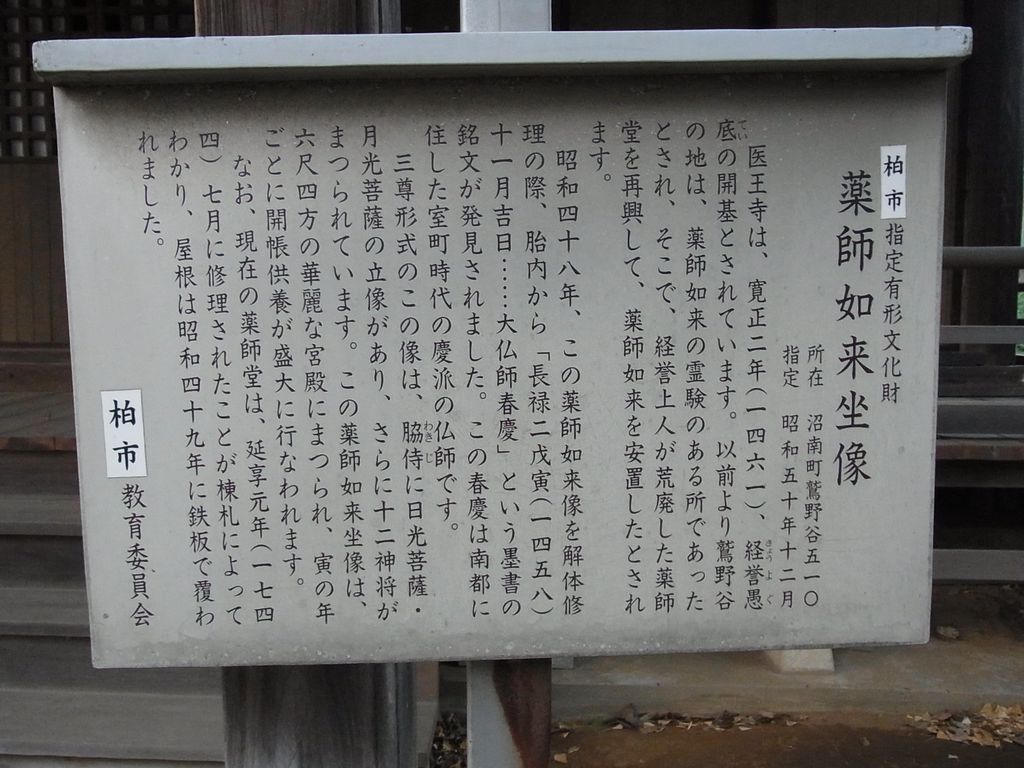 柏市指定有形文化財
薬師如来坐像
所在 沼南町鷲野谷五一〇
指定 昭和五十年十二月
医王寺は、寛正二年(一四六一)、経誉愚
きょうよぐ
底の開基とされています。以前より鷲野谷
てい
の地は、薬師如来の霊験のある所であった
とされ、そこで、経誉上人が荒廃した薬師
堂を再興して、薬師如来を安置したとされ
ます。
昭和四十八年、この薬師如来像を解体修
理の際、胎内から「長禄二戊寅(一四五八)
十一月吉日……大仏師春慶」という墨書の
銘文が発見されました。この春慶は南都に
住した室町時代の慶派の仏師です。
三尊形式のこの像は、脇侍に日光菩薩・
わきじ
月光菩薩の立像があり、さらに十二神将が
まつられています。この薬師如来坐像は、
六尺四方の華麗な宮殿にまつられ、寅の年
ごとに開帳供養が盛大に行なわれます。
なお、現在の薬師堂は、延享元年(一七四
四)七月に修理されたことが棟札によって
わかり、屋根は昭和四十九年に鉄板で覆わ
れました。
柏市教育委員会